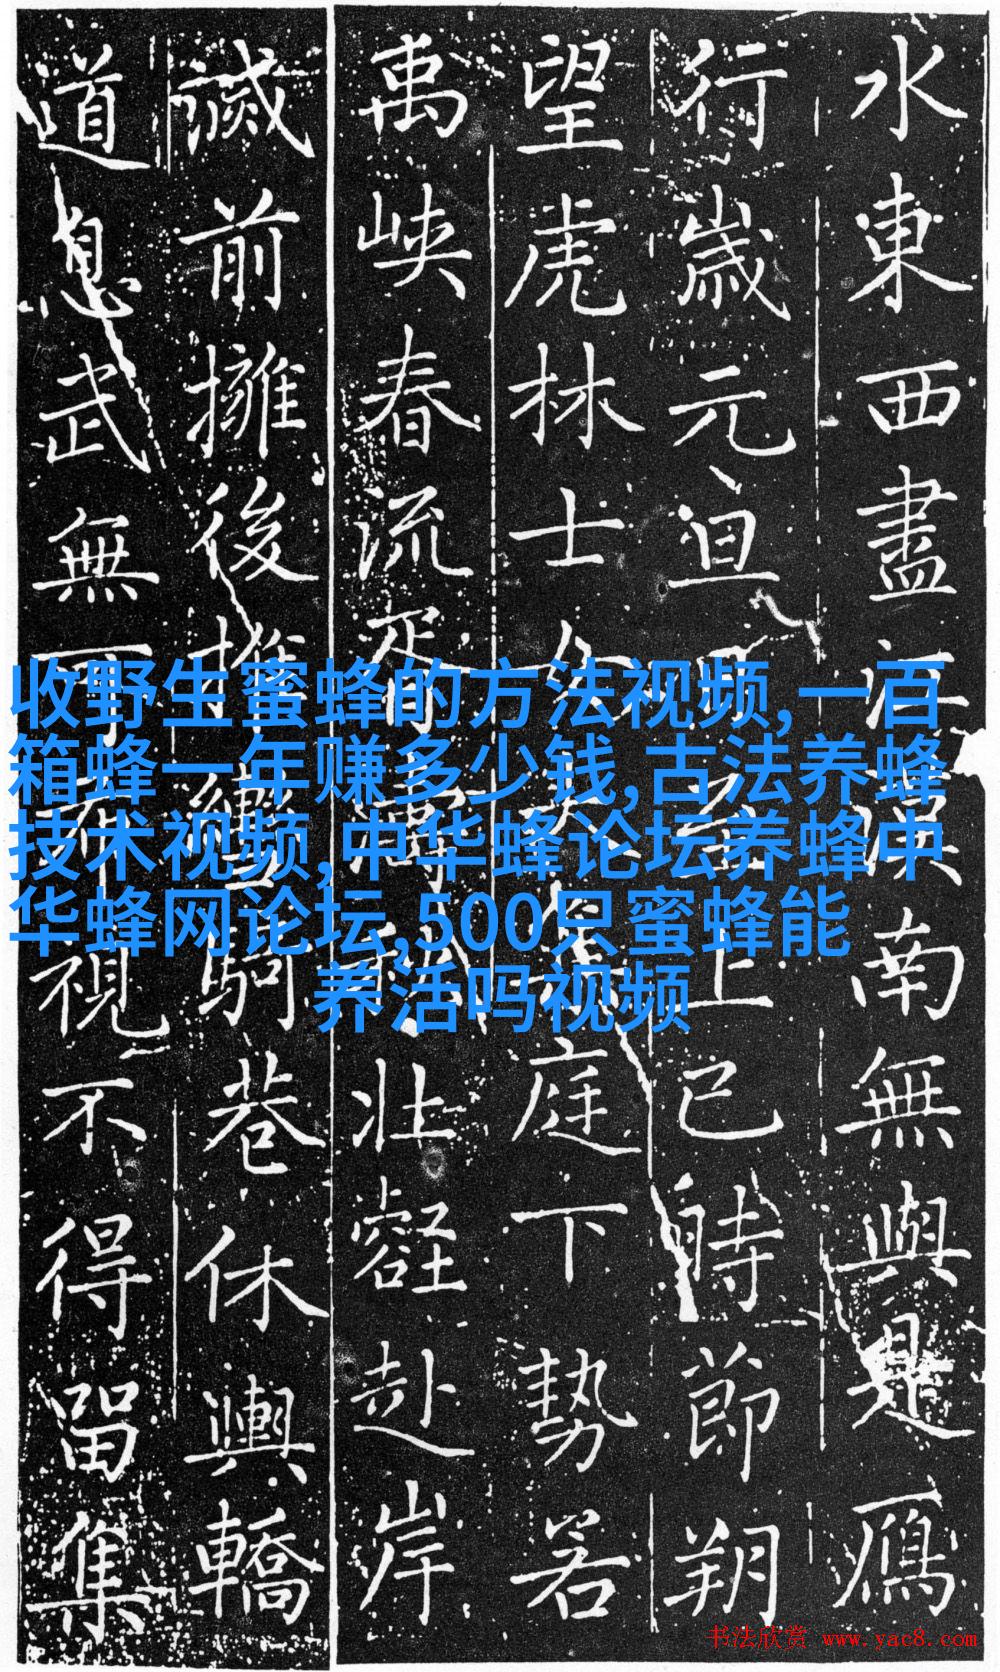 水東西盡江漢南無與是鴈
行歲元旦至上巳時節朔
望虎林士女庭下勢若
禹峽春流濤壯壑赴岸
前擁後推駒巷休輿轎
道息武無可視不得留集
收野生蜜蜂的方法视频,一百
箱蜂一年赚多少钱,古法养蜂
技术视频,中华蜂论坛养蜂中
华蜂网论坛,500只蜜蜂能
养活吗视频
书法欣赏 www.yac8.com